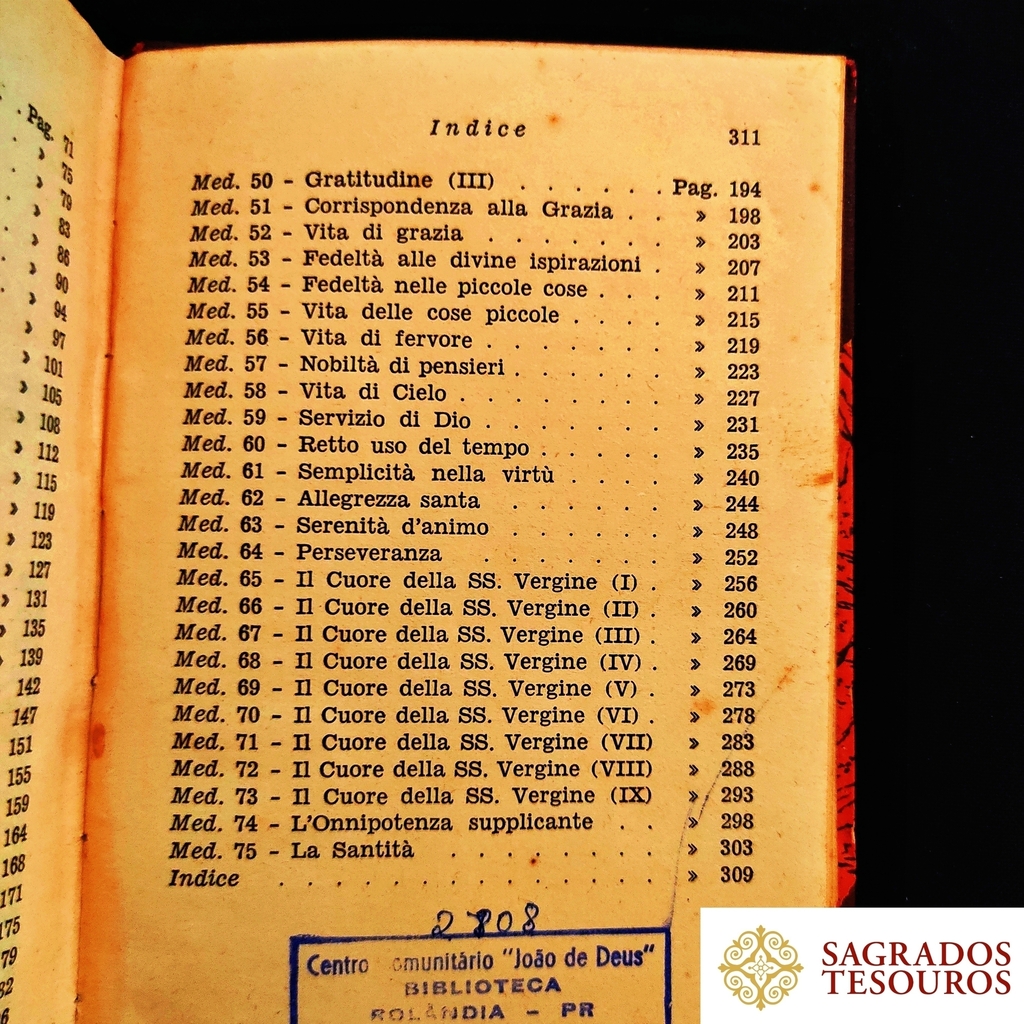 Pag. 71
» 75
» 79
» 83
» 86
» 90
» 94
» 97
» 101
» 105
» 108
» 112
» 115
» 119
» 123
» 127
» 131
» 135
» 139
142
147
151
155
159
164
168
171
175
79
82
Indice 311
Med. 50 - Gratitudine (III) . . . . . . Pag. 194
Med. 51 - Corrispondenza alla Grazia . . » 198
Med. 52 - Vita di grazia . . . . . . . » 203
Med. 53 - Fedeltà alle divine ispirazioni . » 207
Med. 54 - Fedeltà nelle piccole cose . . . » 211
Med. 55 - Vita delle cose piccole . . . . » 215
Med. 56 - Vita di fervore . . . . . . . » 219
Med. 57 - Nobiltà di pensieri . . . . . . » 223
Med. 58 - Vita di Cielo . . . . . . . . » 227
Med. 59 - Servizio di Dio . . . . . . . » 231
Med. 60 - Retto uso del tempo . . . . . » 235
Med. 61 - Semplicità nella virtù . . . . » 240
Med. 62 - Allegrezza santa . . . . . . » 244
Med. 63 - Serenità d'animo . . . . . . » 248
Med. 64 - Perseveranza . . . . . . . » 252
Med. 65 - Il Cuore della SS. Vergine (I) . » 256
Med. 66 - Il Cuore della SS. Vergine (II) . » 260
Med. 67 - Il Cuore della SS. Vergine (III) . » 264
Med. 68 - Il Cuore della SS. Vergine (IV) . » 269
Med. 69 - Il Cuore della SS. Vergine (V) . » 273
Med. 70 - Il Cuore della SS. Vergine (VI) . » 278
Med. 71 - Il Cuore della SS. Vergine (VII) » 283
Med. 72 - Il Cuore della SS. Vergine (VIII) » 288
Med. 73 - Il Cuore della SS. Vergine (IX) » 293
Med. 74 - L'Onnipotenza supplicante . . » 298
Med. 75 - La Santità . . . . . . . . » 303
Indice . . . . . . . . . . . . . . » 309
2808
Centro omunitário "João de Deus"
BIBLIOTECA
ROLÂNDIA - PR
SAGRADOS
TESOUROS